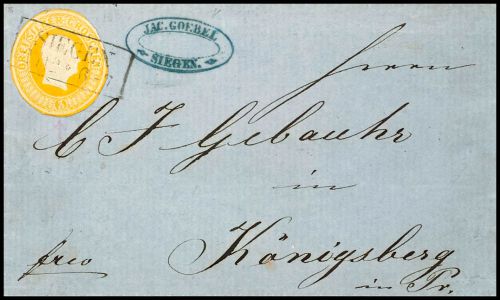 JAC. GOEBEL
SIEGEN.
Herrn
C F Gebauhr
in
Königsberg
in Pr.
frco